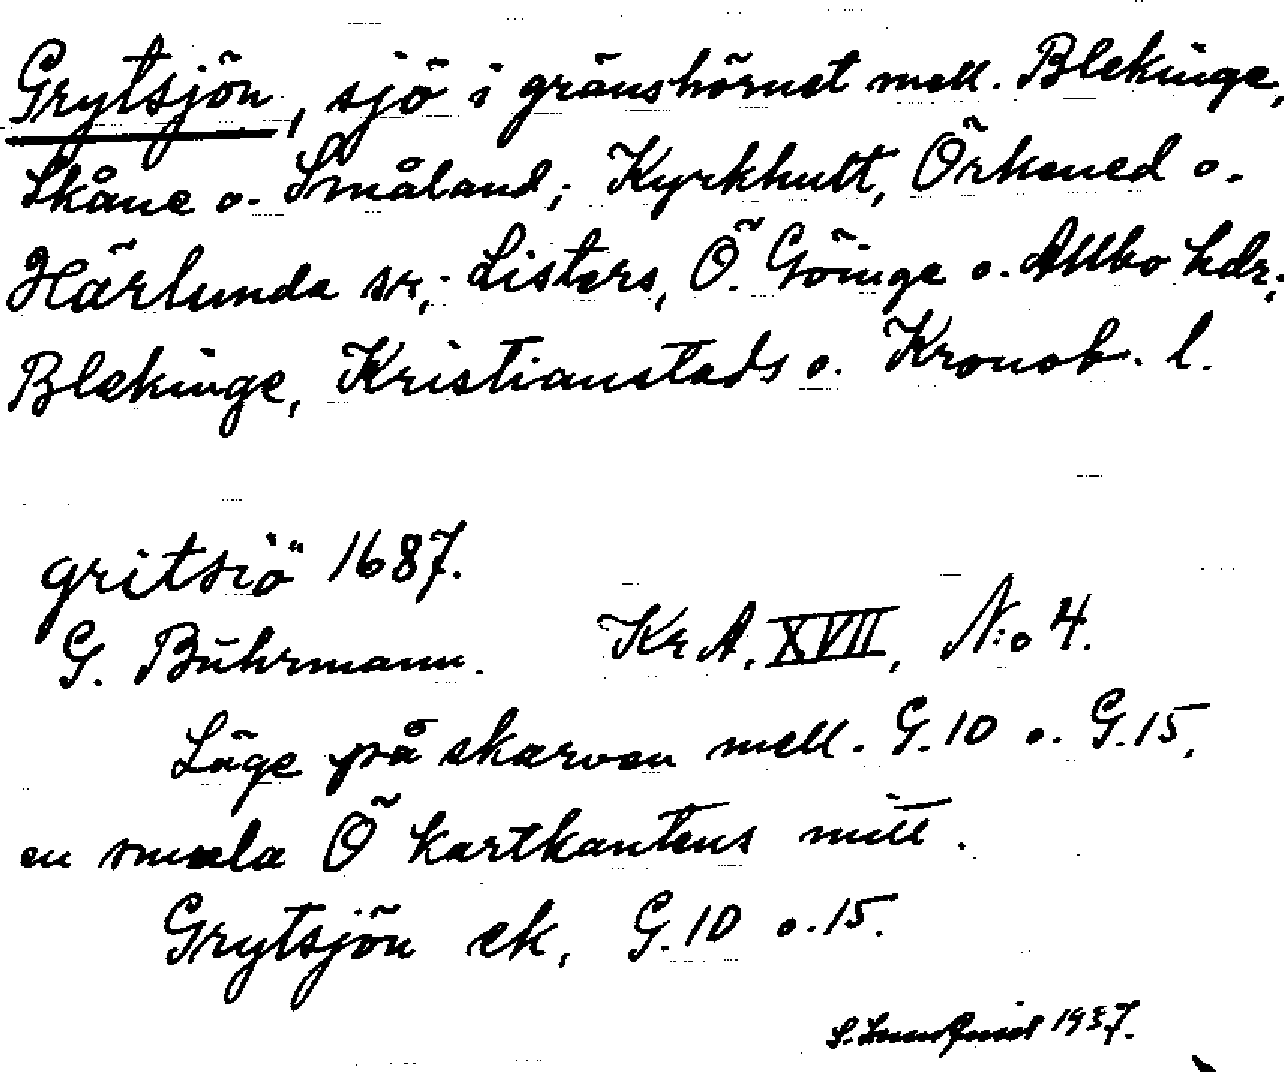 Grytsjön, sjö i gränshörnet mell. Blekinge,
Skåne o. Småland; Kyrkhult, Örkened o.
Härlunda sn,; Listers, Ö. Göinge o. Allbo hdr,;
Blekinge, Kristianstads o. Kronob. l.
gritsiö 1687.
G. Buhrmann. KrA. XVII, N:o 4.
Läge på skarven mell. G.10 o. G.15,
en smula Ö kartkantens mitt.
Grytsjön ek, G.10 o. 15.
S. Lundqvist 1937.